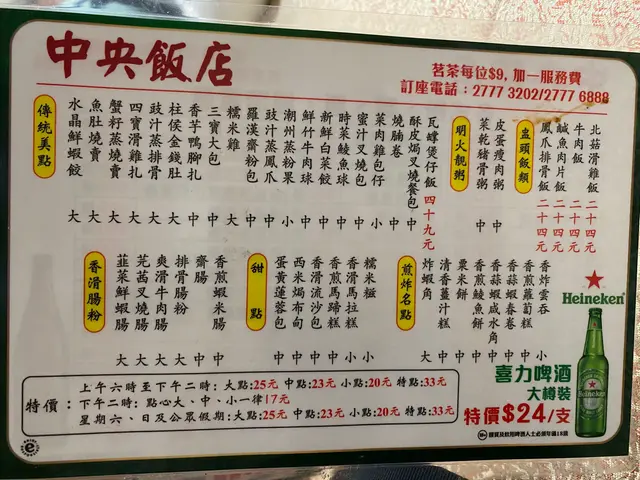 中央飯店
茗茶每位$9, 加一服務費
訂座電話：2777 3202/2777 6888
傳統美點
水晶鮮蝦餃 大
魚肚燒賣 大
蟹籽蒸燒賣 大
四寶滑雞扎 大
豉汁蒸排骨 大
柱侯金錢肚 大
香芋鴨腳扎 中
三寶大包 中
糯米雞 大
羅漢齋粉包 中
豉汁蒸鳳爪 中
潮州蒸粉果 小
鮮竹牛肉球 中
新鮮白菜餃 中
時菜鯪魚球 中
蜜汁叉燒包 中
菜肉雞包仔 小
燒腩卷 中
酥皮焗叉燒餐包 中
瓦罉煲仔飯 四十九元
明火靚粥
菜乾豬骨粥 中
皮蛋瘦肉粥 中
盅頭飯類
鳳爪排骨飯 二十四元
鹹魚肉片飯 二十四元
牛肉飯 二十四元
北菇滑雞飯 二十四元
香滑腸粉
韮菜鮮蝦腸 大
芫茜叉燒腸 大
爽滑牛肉腸 大
排骨腸粉 大
齋腸 中
香煎蝦米腸 中
甜點
蛋黃蓮蓉包 中
西米焗布甸 中
香滑流沙包 中
香煎馬蹄糕 中
香滑馬拉糕 小
糯米糍 小
煎炸名點
炸蝦角 大
清香薑汁糕 中
粟米餅 中
香煎鯪魚餅 中
香蒜蝦咸水角 中
香蒜蝦春卷 中
香煎蘿蔔糕 小
香炸雲吞 小
Heineken
Heineken
喜力啤酒
大樽裝
特價$24/支
特價：
上午六時至下午二時：大點:25元 中點:23元 小點:20元 特點:33元
下午二時：點心大、中、小一律17元
星期六、日及公眾假期：大點:25元 中點:23元 小點:20元 特點:33元